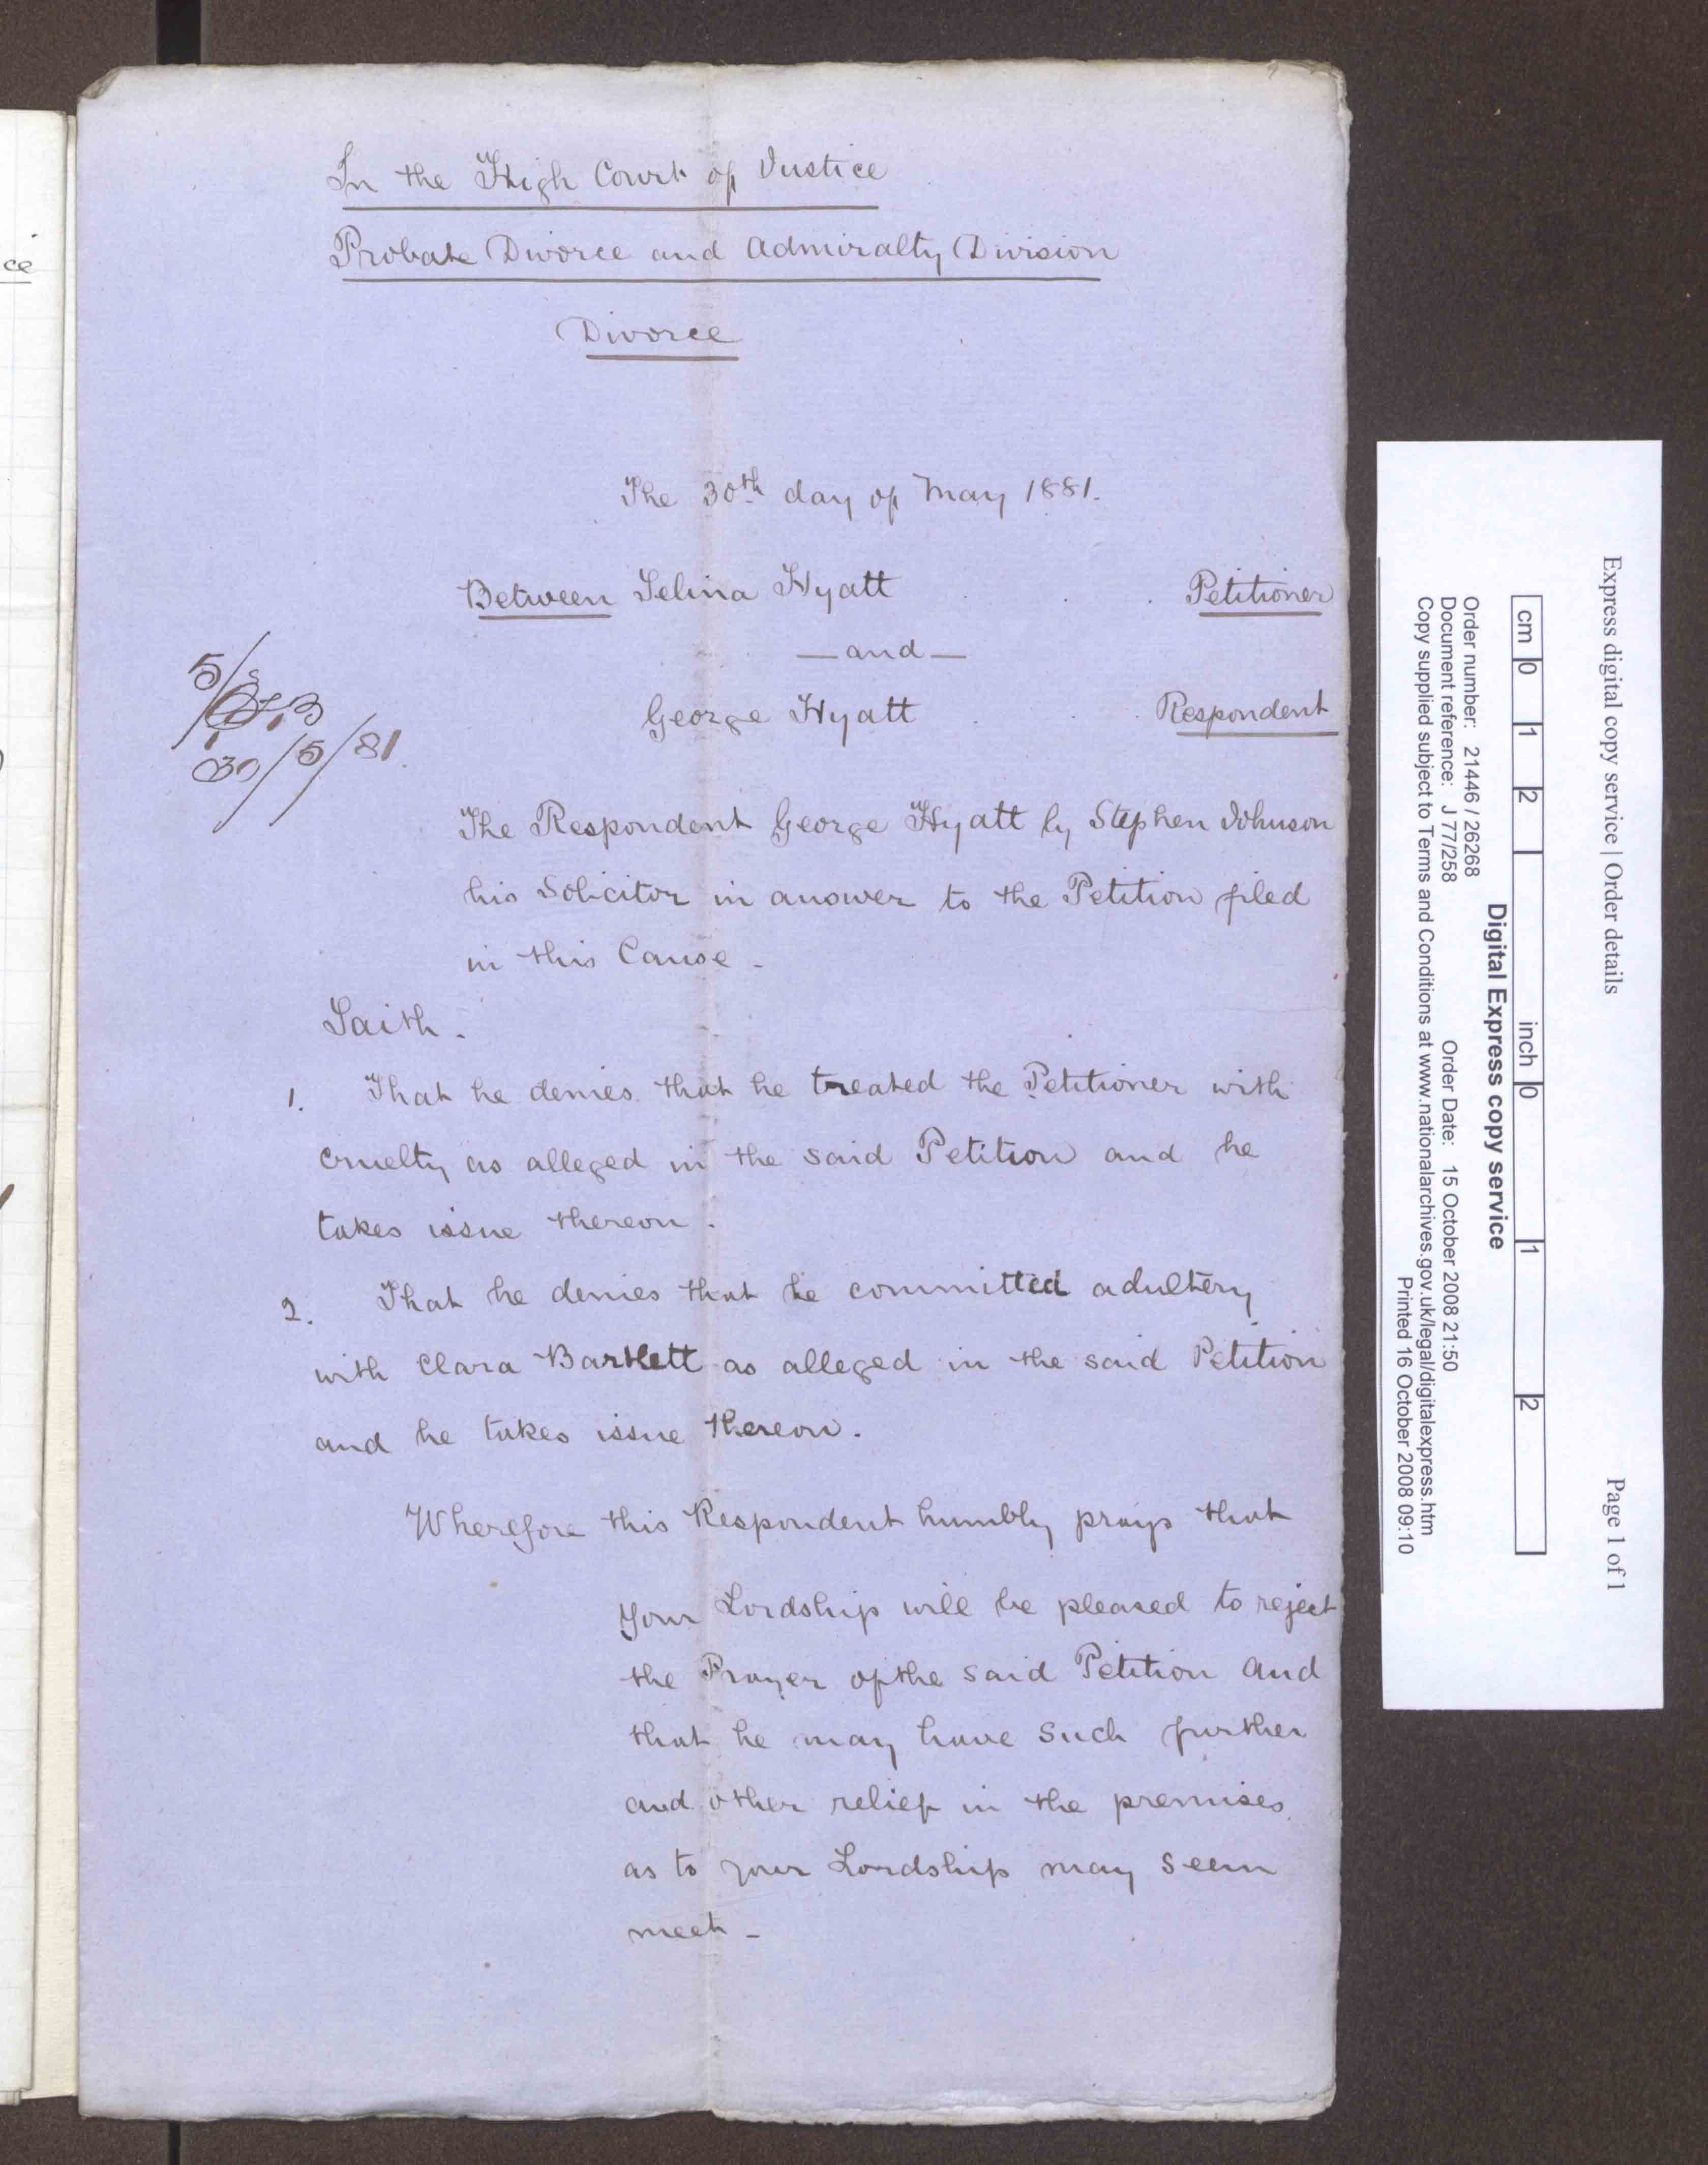 In the High Court of Justice
Probate Divorce and Admiralty Division
Divorce
The 30th day of May 1881.
Between Selina Hyatt . . . Petitioner
— and —
George Hyatt . . . Respondent
5/
30/5/81.
The Respondent George Hyatt by Stephen Johnson
his Solicitor in answer to the Petition filed
in this Cause -
Saith -
1. That he denies that he treated the Petitioner with
cruelty as alleged in the said Petition and he
takes issue thereon.
2. That he denies that he committed adultery
with Clara Bartlett as alleged in the said Petition
and he takes issue thereon.
Wherefore this Respondent humbly prays that
Your Lordship will be pleased to reject
the Prayer of the said Petition and
that he may have such further
and other relief in the premises
as to your Lordship may seem
meet -
ce
Express digital copy service | Order details Page 1 of 1
cm 0 1 2 inch 0 1 2
Digital Express copy service
Order number: 21446 / 26268 Order Date: 15 October 2008 21:50
Document reference: J 77/258
Copy supplied subject to Terms and Conditions at www.nationalarchives.gov.uk/legal/digitalexpress.htm
Printed 16 October 2008 09:10